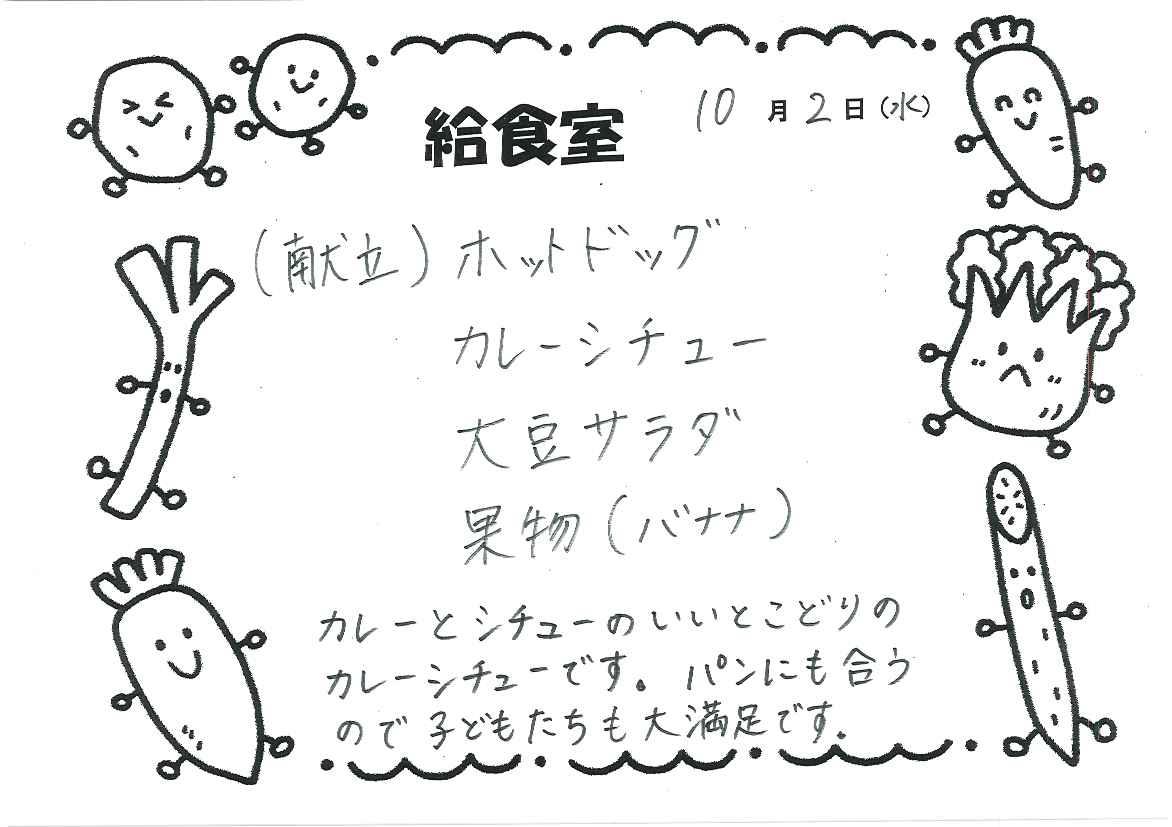 給食室
10月2日(水)
(献立)ホットドッグ
カレーシチュー
大豆サラダ
果物(バナナ)
カレーとシチューのいいとこどりの
カレーシチューです。パンにも合う
ので子どもたちも大満足です。